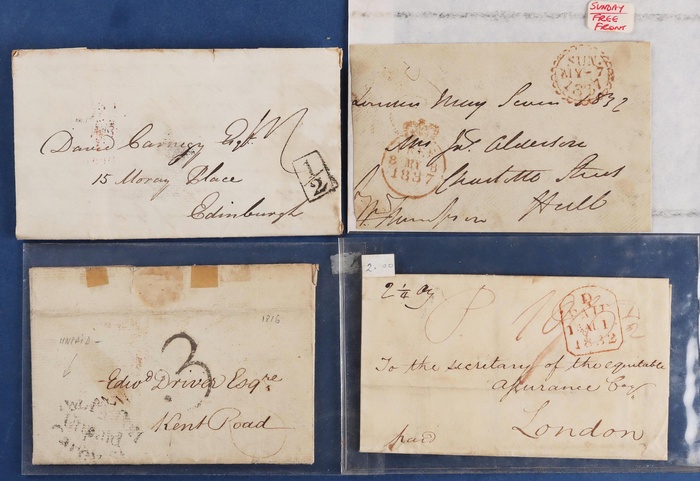 David Carnegy Esqr
15 Moray Place
Edinburgh
1/2
SUNDAY
FREE
FRONT
SUN
MY - 7
1837
London May Seven 1837
Mrs Alderson
Charlotte Street
Hull
8 MY 8
1837
1816
UNPAID
3
Edwd Driver Esqre
Kent Road
2.00
2 1/4 Oz
P
PAID
1832
To the secretary of the equitable
assurance Coy
London
paid